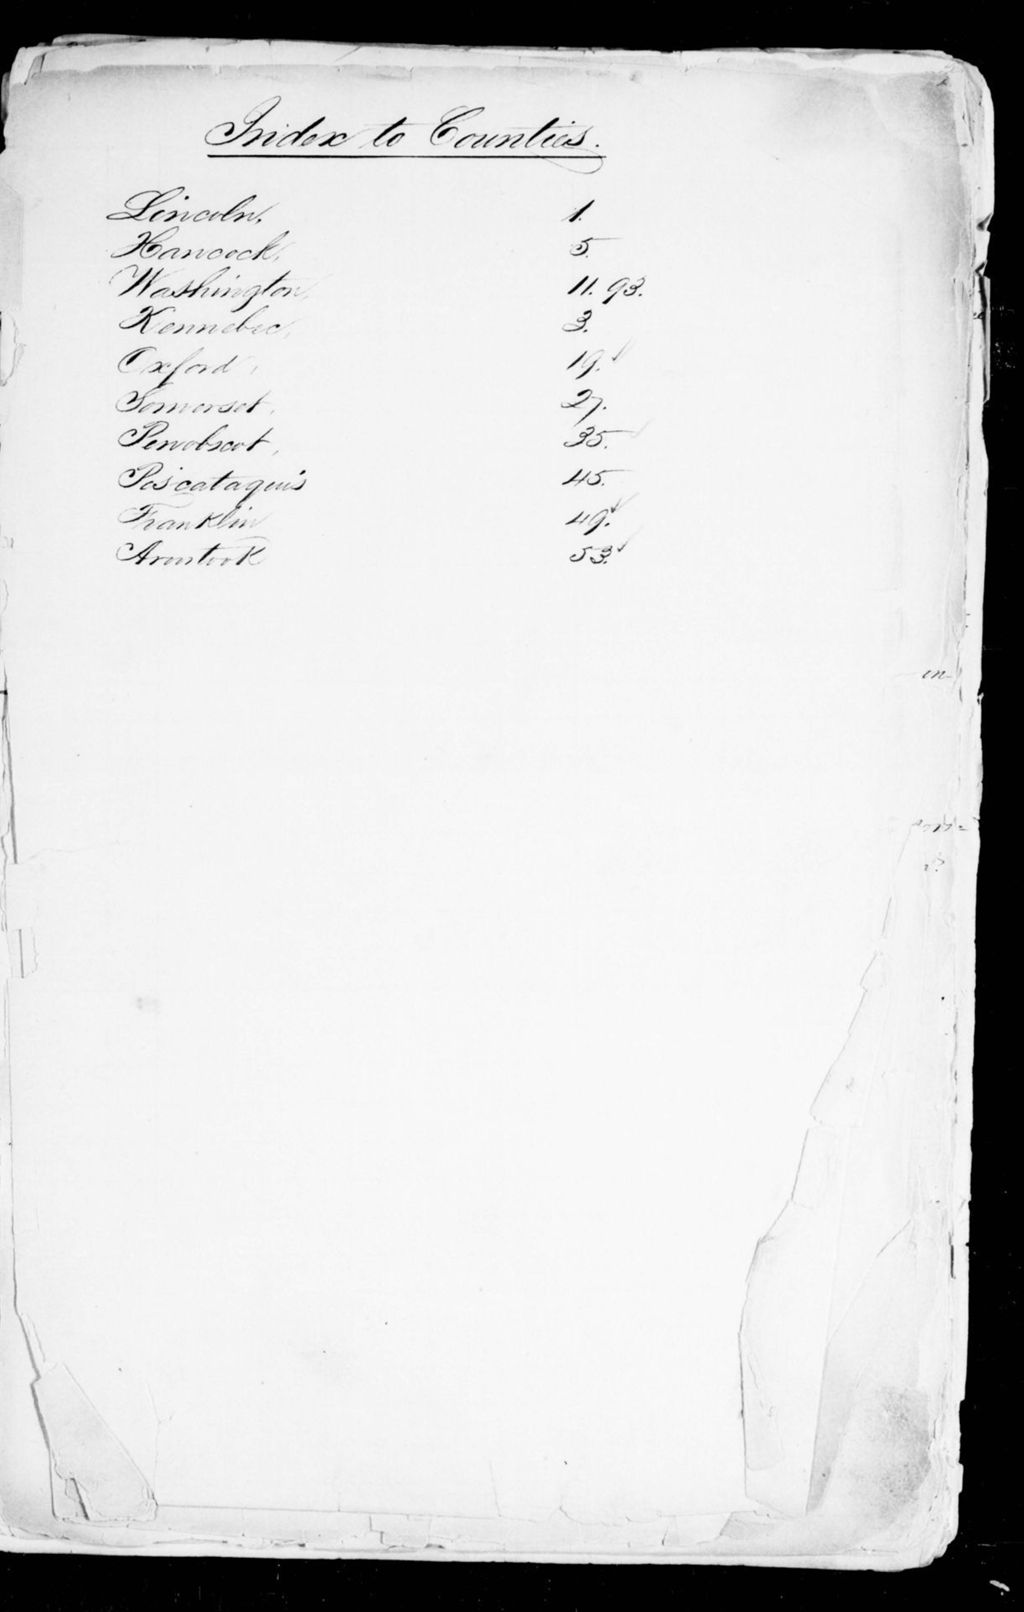 Index to Counties.
Lincoln, 1.
Hancock, 5.
Washington, 11. 93.
Kennebec, 3.
Oxford, 19. ✓
Somerset, 27.
Penobscot, 35. ✓
Piscataquis 45.
Franklin 49. ✓
Aroostook 53. ✓